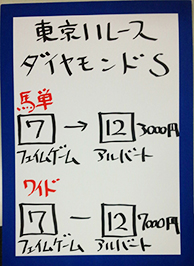 東京11レース
ダイヤモンドS
馬単
7 → 12 3000円
フェイムゲーム アルバート
ワイド
7 － 12 7000円
フェイムゲーム アルバート